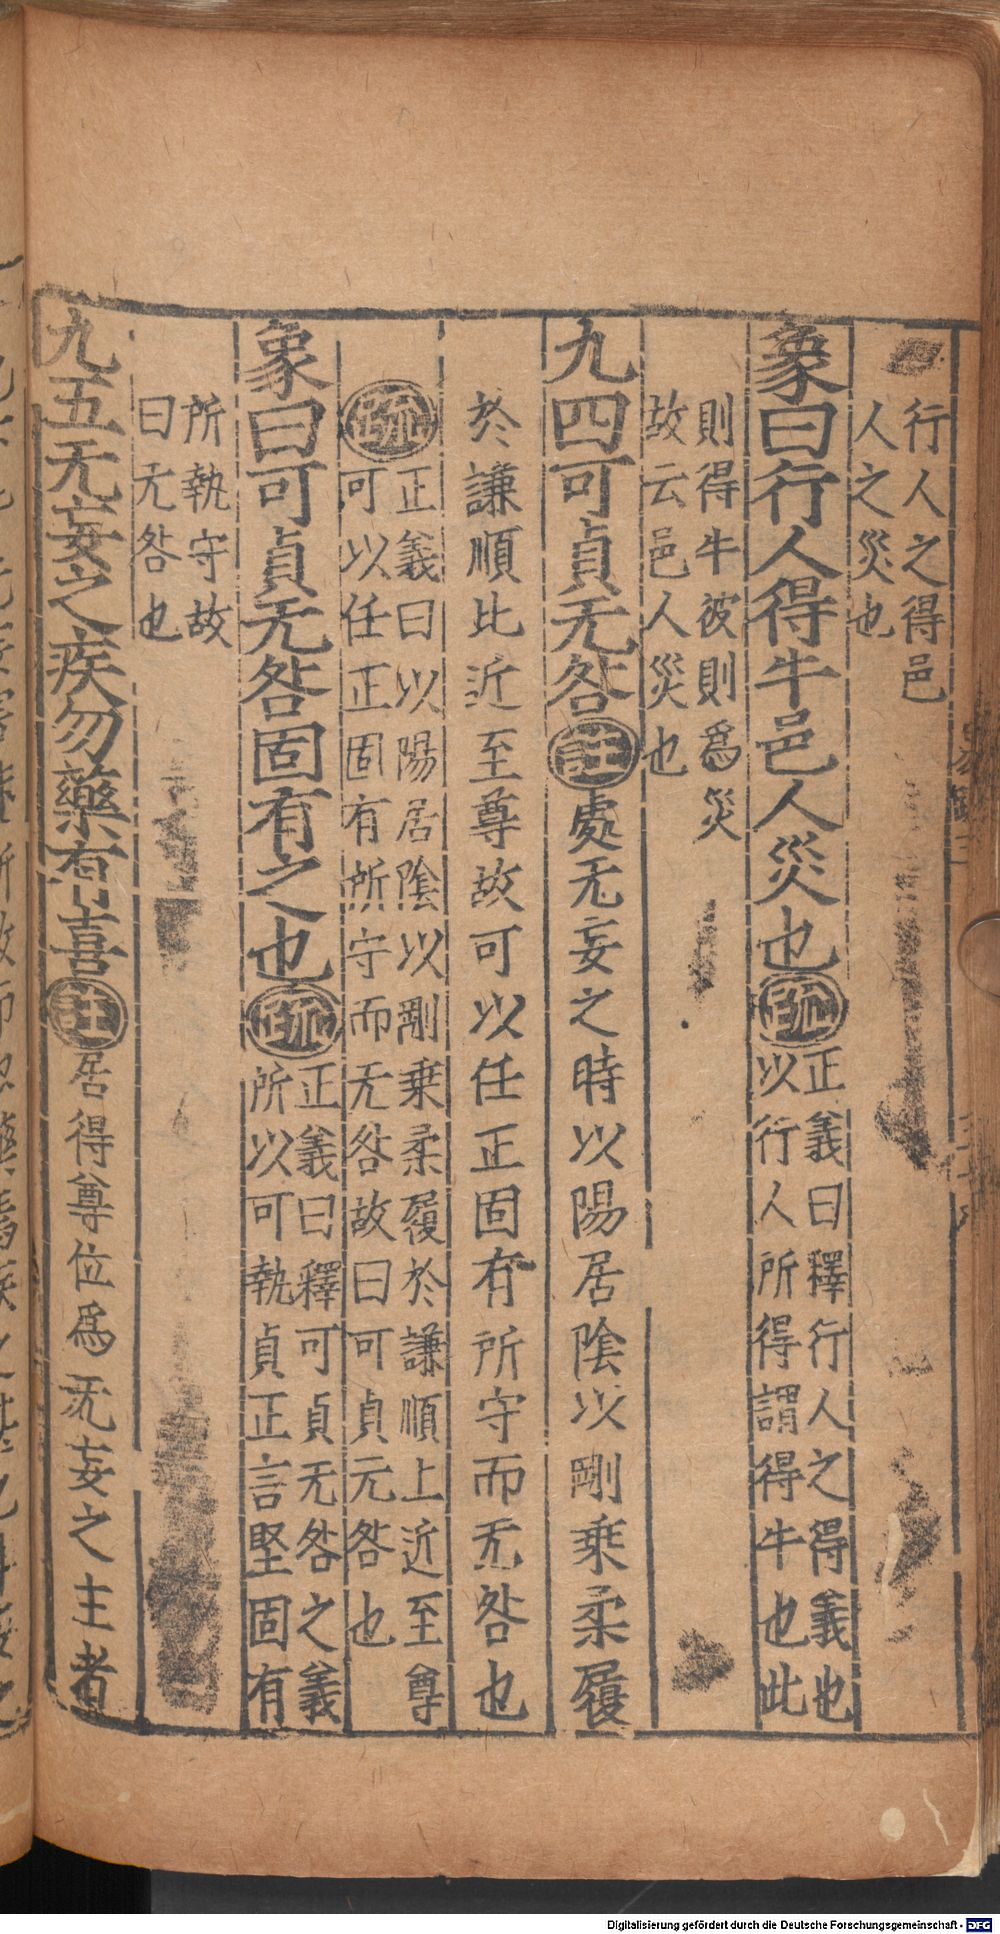 行人之得邑
人之災也
象曰行人得牛邑人災也疏正義曰釋行人之得義也
以行人所得謂得牛也此
則得牛彼則爲災
故云邑人災也
九四可貞无咎註處无妄之時以陽居陰以剛乘柔履
於謙順比近至尊故可以任正固有所守而无咎也
疏正義曰以陽居陰以剛乗柔履於謙順上近至尊
可以任正固有所守而无咎故曰可貞元咎也
象曰可貞无咎固有之也疏正義曰釋可貞无咎之義
所以可執貞正言堅固有
所執守故
曰无咎也
九五无妄之疾勿藥有喜註居得尊位爲旡妄之主者
Digitalisierung gefördert durch die Deutsche Forschungsgemeinschaft - DFG